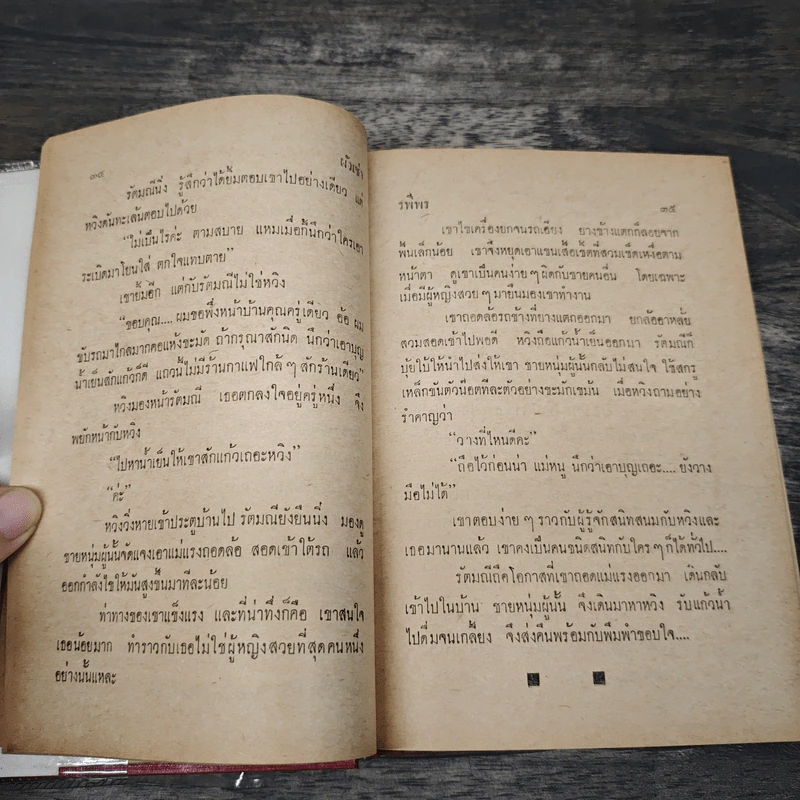 ๓๔
ผัมชำ
รัตมณีนิ่ง รู้สึกว่าได้ยิ้มตอบเขาไปอย่างเดียว แต่
หวิงดันทะเล้นตอบไปด้วย
“ไม่เป็นไรค่ะ ตามสบาย แหมเมื่อกี้นึกว่าใครเอา
ระเบิดมาโยนใส่ ตกใจแทบตาย”
เขายิ้มอีก แต่กับรัตมณีไม่ใช่หวิง
“ขอบคุณ.... ผมขอพึ่งหน้าบ้านคุณครู่เดียว อ้อ ผม
ขับรถมาไกลมากคอแห้งชะมัด ถ้ากรุณาสักนิด นึกว่าเอาบุญ
น้ำเย็นสักแก้วก็ดี แถวนี้ไม่มีร้านกาแฟใกล้ ๆ สักร้านเดียว”
หวิงมองหน้ารัตมณี เธอตกลงใจอยู่ครู่หนึ่ง จึง
พยักหน้ากับหวิง
“ไปหาน้ำเย็นให้เขาสักแก้วเถอะหวิง”
“ค่ะ”
หวิงวิ่งหายเข้าประตูบ้านไป รัตมณียังยืนนิ่ง มองดู
ชายหนุ่มผู้นั้นจัดแจงเอาแม่แรงถอดล้อ สอดเข้าใต้รถ แล้ว
ออกกำลังไขให้มันสูงขึ้นมาทีละน้อย
ท่าทางของเขาแข็งแรง และที่น่าทึ่งก็คือ เขาสนใจ
เธอน้อยมาก ทำราวกับเธอไม่ใช่ผู้หญิงสวยที่สุดคนหนึ่ง
อย่างนั้นแหละ
รพีพร
๓๕
เขาไขเครื่องยกจนรถเอียง ยางข้างแตกก็ลอยจาก
พื้นเล็กน้อย เขาจึงหยุดเอาแขนเสื้อเชิ้ตที่สวมเช็ดเหงื่อตาม
หน้าตา ดูเขาเป็นคนง่าย ๆ ผิดกับชายคนอื่น โดยเฉพาะ
เมื่อมีผู้หญิงสวย ๆ มายืนมองเขาทำงาน
เขาถอดล้อรถข้างที่ยางแตกออกมา ยกล้ออาหลั่ย
สวมสอดเข้าไปพอดี หวิงถือแก้วน้ำเย็นออกมา รัตมณีก็
บุ้ยใบ้ให้นำไปส่งให้เขา ชายหนุ่มผู้นั้นกลับไม่สนใจ ใช้สกรู
เหล็กขันตัวน๊อตทีละตัวอย่างขะมักเขมัน เมื่อหวิงถามอย่าง
รำคาญว่า
“วางที่ไหนดีคะ”
“ถือไว้ก่อนน่า แม่หนู นึกว่าเอาบุญเถอะ.... ยังวาง
มือไม่ได้”
เขาตอบง่าย ๆ ราวกับผู้รู้จักสนิทสนมกับหวิงและ
เธอมานานแล้ว เขาคงเป็นคนชนิดสนิทกับใคร ๆ ก็ได้ทั่วไป....
รัตมณีถือโอกาสที่เขาถอดแม่แรงออกมา เดินกลับ
เข้าไปในบ้าน ชายหนุ่มผู้นั้น จึงเดินมาหาหวิง รับแก้วน้ำ
ไปดื่มจนเกลี้ยง จึงส่งคืนพร้อมกับพึมพำขอบใจ....